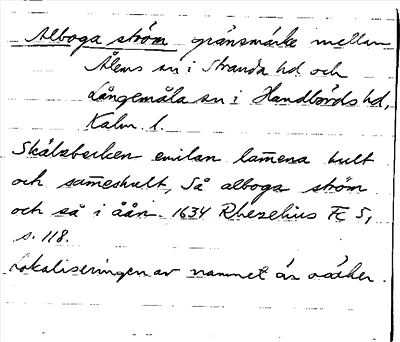 Alboga ström gränsmärke mellan
Ålems sn i Stranda hd och
Långemåla sn i Handbörds hd,
Kalm. l.
Skälzbecken emilan lam̅ena hult
och sam̅eshult, Så alboga ström
och så i åån. 1634 Rhezelius Fc 5,
s. 118.
Lokaliseringen av namnet är osäker.